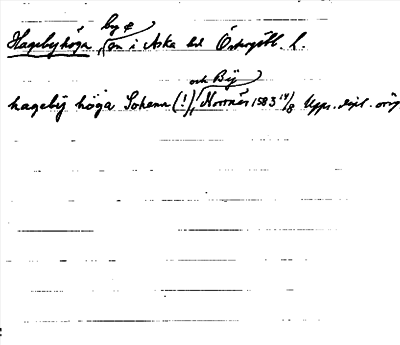 Hagebyhöga by o sn i Aska hd Östergötl. l.
hagebÿ höga Sokenn (!) och Bÿ Norrnäs 1583 14/8 Upps. dipl. orig